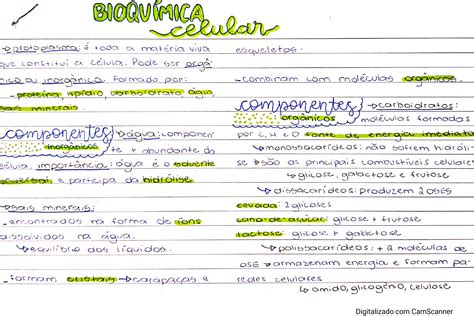 BIOQUÍMICA
celular
protoplasma: é toda a matéria viva
que constitui a célula. Pode ser orgâ
nico ou inorgânico. Formado por:
- proteína, lipídio, carboidrato, água
sais minerais.
componentes
inorgânicos
água: componen
te + abundante da
célula. importância: água é o solvente
universal e participa da hidrólise.
sais minerais:
- encontrados na forma de íons
dissolvidos na água.
equilíbrio dos líquidos.
- formam cristais → carapaças e
esqueletos.
- combinam com moléculas orgânicas.
componentes
orgânicos
carboidratos:
moléculas formadas
por C, H e O fonte de energia imediata
monossacarídeos: não sofrem hidróli
se → são os principais combustíveis celulares
glicose, galactose e frutose
dissacarídeos: produzem 2 OSES
cevada: 2 glicoses
cana de açúcar: glicose + frutose
lactose: glicose + galactose
polissacarídeos: + 2 moléculas de
OSE → armazenam energia e formam pa
redes celulares
amido, glicogênio, celulose
Digitalizado com CamScanner